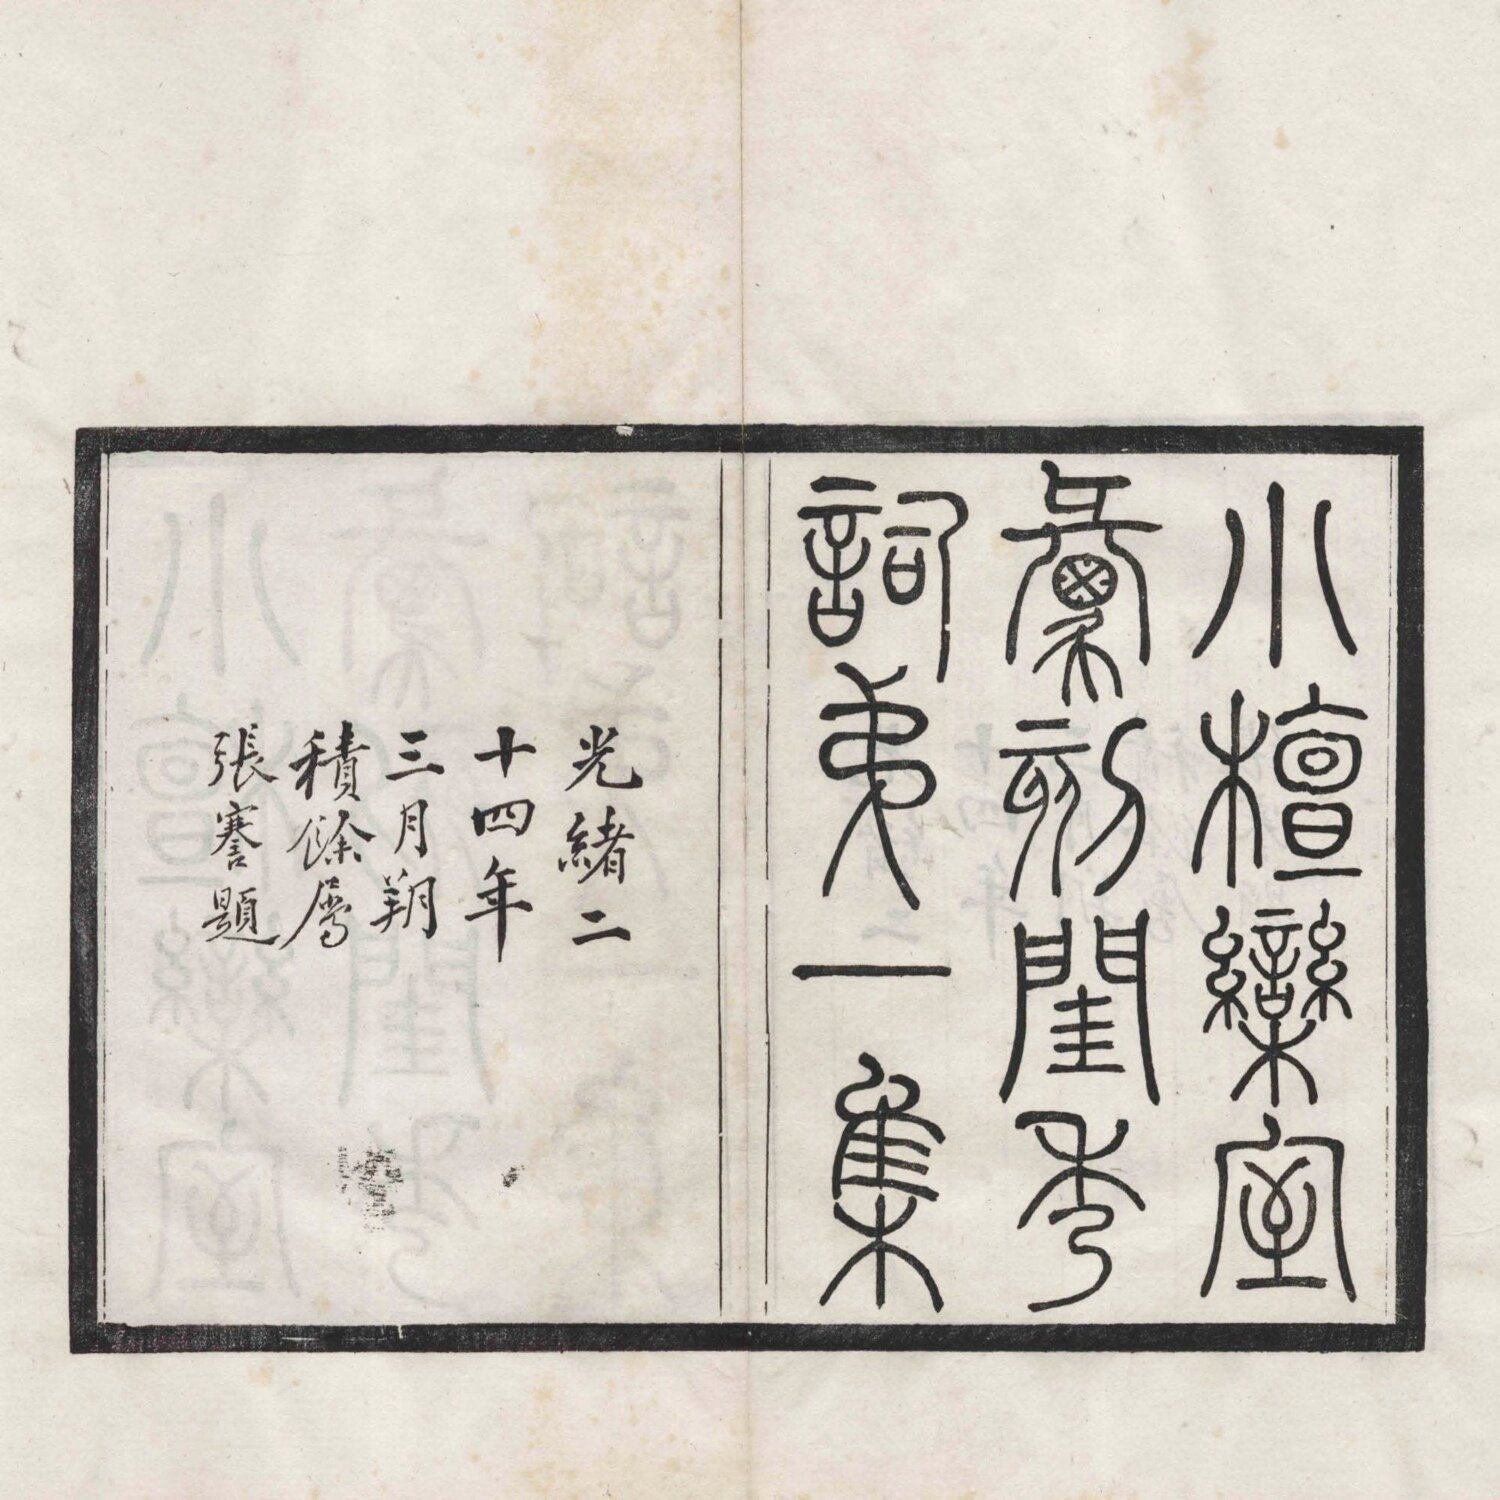 小檀欒室
彙刻閨秀
詞弟一集
光緒二
十四年
三月朔
積餘屬
張謇題